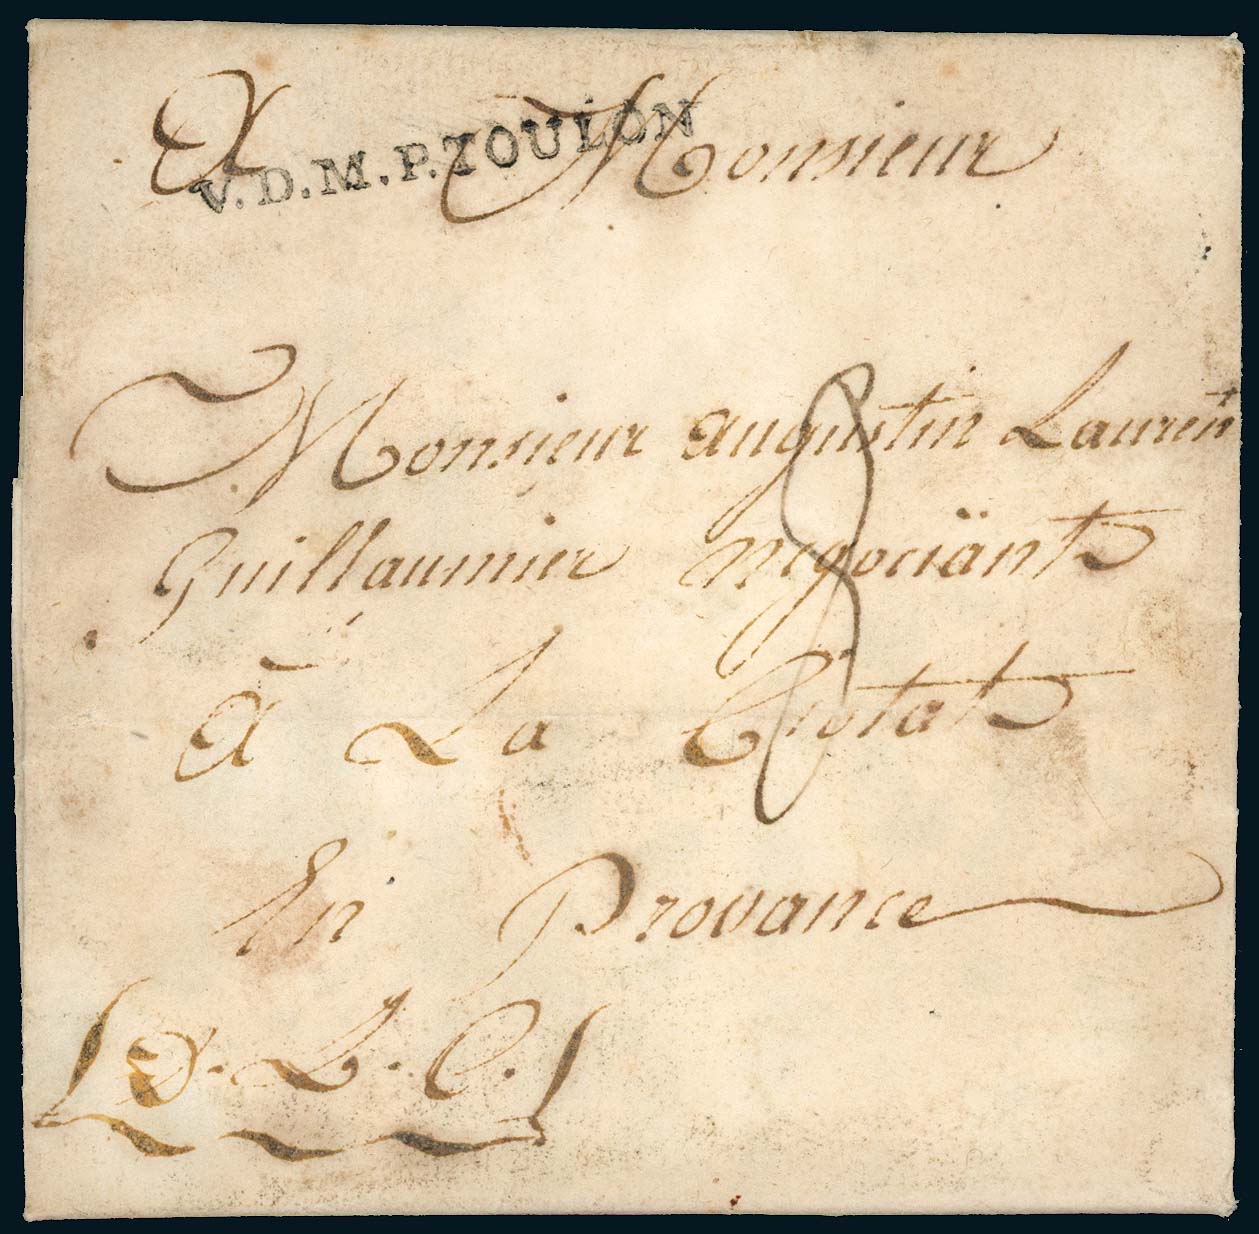 A Monsieur
V.D.M.P.TOULON
Monsieur augustin Laurent
Guillaumier negociänt
à La Ciotat
En Provance
D. L. C.
8